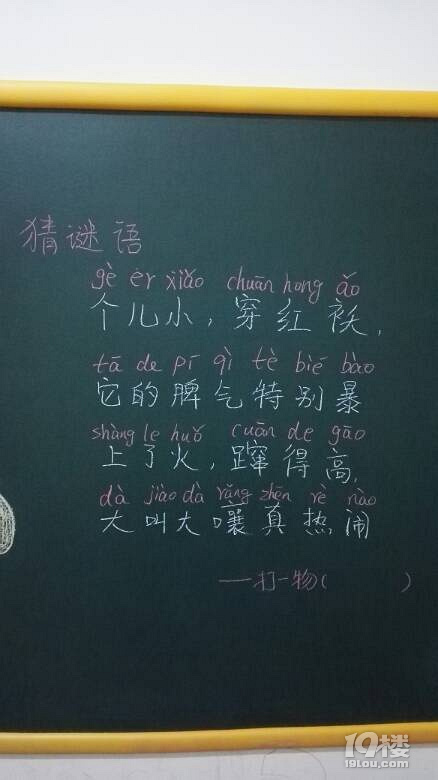 猜谜语
gè ér xiǎo chuān hong ǎo
个儿小，穿红袄，
tā de pí qì tè bié bào
它的脾气特别暴
shàng le huǒ cuān de gāo
上了火，蹿得高，
dà jiào dà rǎng zhēn rè nào
大叫大嚷真热闹
——打一物（ ）
19楼
19lou.com